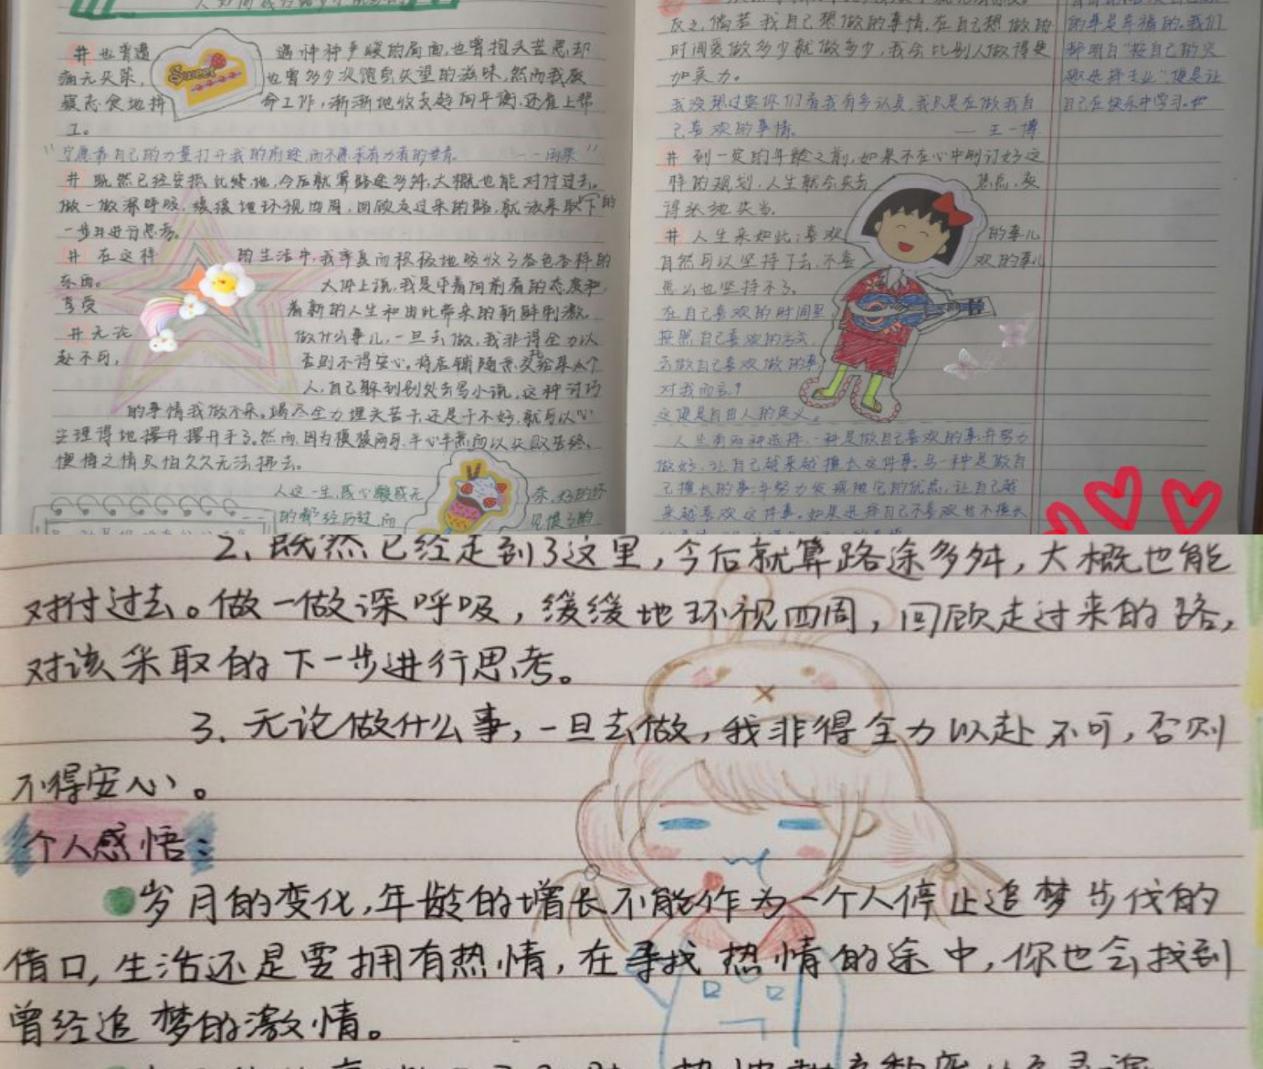 井 也曾遇 遇种种严峻的局面,也曾抱头苦思却
痛无头策, 也曾多少次饱尝失望的滋味,然而我废
寝忘食地拼 Sweet 命工作,渐渐地收支趋向平衡,还雇上帮
工。
宁愿靠自己的力量打开我的前途,而不愿求有力者的垂青。 ——雨果
井 既然已经安抵此绿地,今后就算路途多舛,大概也能对付过去。
做一做深呼吸,缓缓地环视四周,回顾走过来的路,就该采取下的
一步并进行思考。
井 在这样 的生活中,我率真而积极地吸收了各色各样的
东西。 大体上说,我是守着向前看的态度和,
享受 着新的人生和由此带来的新鲜刺激
井 无论 做什么事儿,一旦去做,我非得全力以
赴不可, 否则不得安心,将店铺随意交给某个
人,自己躲到别处去写小说,这种讨巧
的事情我做不来。竭尽全力埋头苦干,还是干不好,就可以心
安理得地撂开撂开手了。然而,因为模棱两可、半心半意而以失败告终,
懊悔之情只怕久久无法拂去。
人这一生,感心酸感无 奈,好的坏
的都经历过,而 见惯了的
反之,倘若我自己想做的事情,在自己想做的
时间爱做多少就做多少,我会比别人做得更
加卖力。
我没想过要你们看我有多认真,我只是在做我自
己喜欢的事情。 —— 王一博
井 到一定的年龄之前,如果不在心中制订好这
样的规划,人生就会失去 焦点,变
得张弛失当。
井 人生来如此:喜欢 的事儿
自然可以坚持下去,不喜 欢的事儿
怎么也坚持不了。
在自己喜欢的时间里
按照自己喜欢的方式
去做自己喜欢做的事
对我而言,
这便是自由人的定义。
人生有两种选择,一种是做自己喜欢的事,并努力
做好,让自己越来越擅长这件事。另一种是做自
己擅长的事,并努力发现它的优点,让自己越
来越喜欢这件事。如果选择自己不喜欢也不擅长
的事是幸福的。我们
都明白"按自己的兴
趣选择专业"便是让
自己在快乐中学习。
2. 既然已经走到了这里,今后就算路途多舛,大概也能
对付过去。做一做深呼吸,缓缓地环视四周,回顾走过来的路,
对该采取的下一步进行思考。
3. 无论做什么事,一旦去做,我非得全力以赴不可,否则
不得安心。
个人感悟:
岁月的变化,年龄的增长不能作为一个人停止追梦步伐的
借口,生活还是要拥有热情,在寻找热情的途中,你也会找到
曾经追梦的激情。